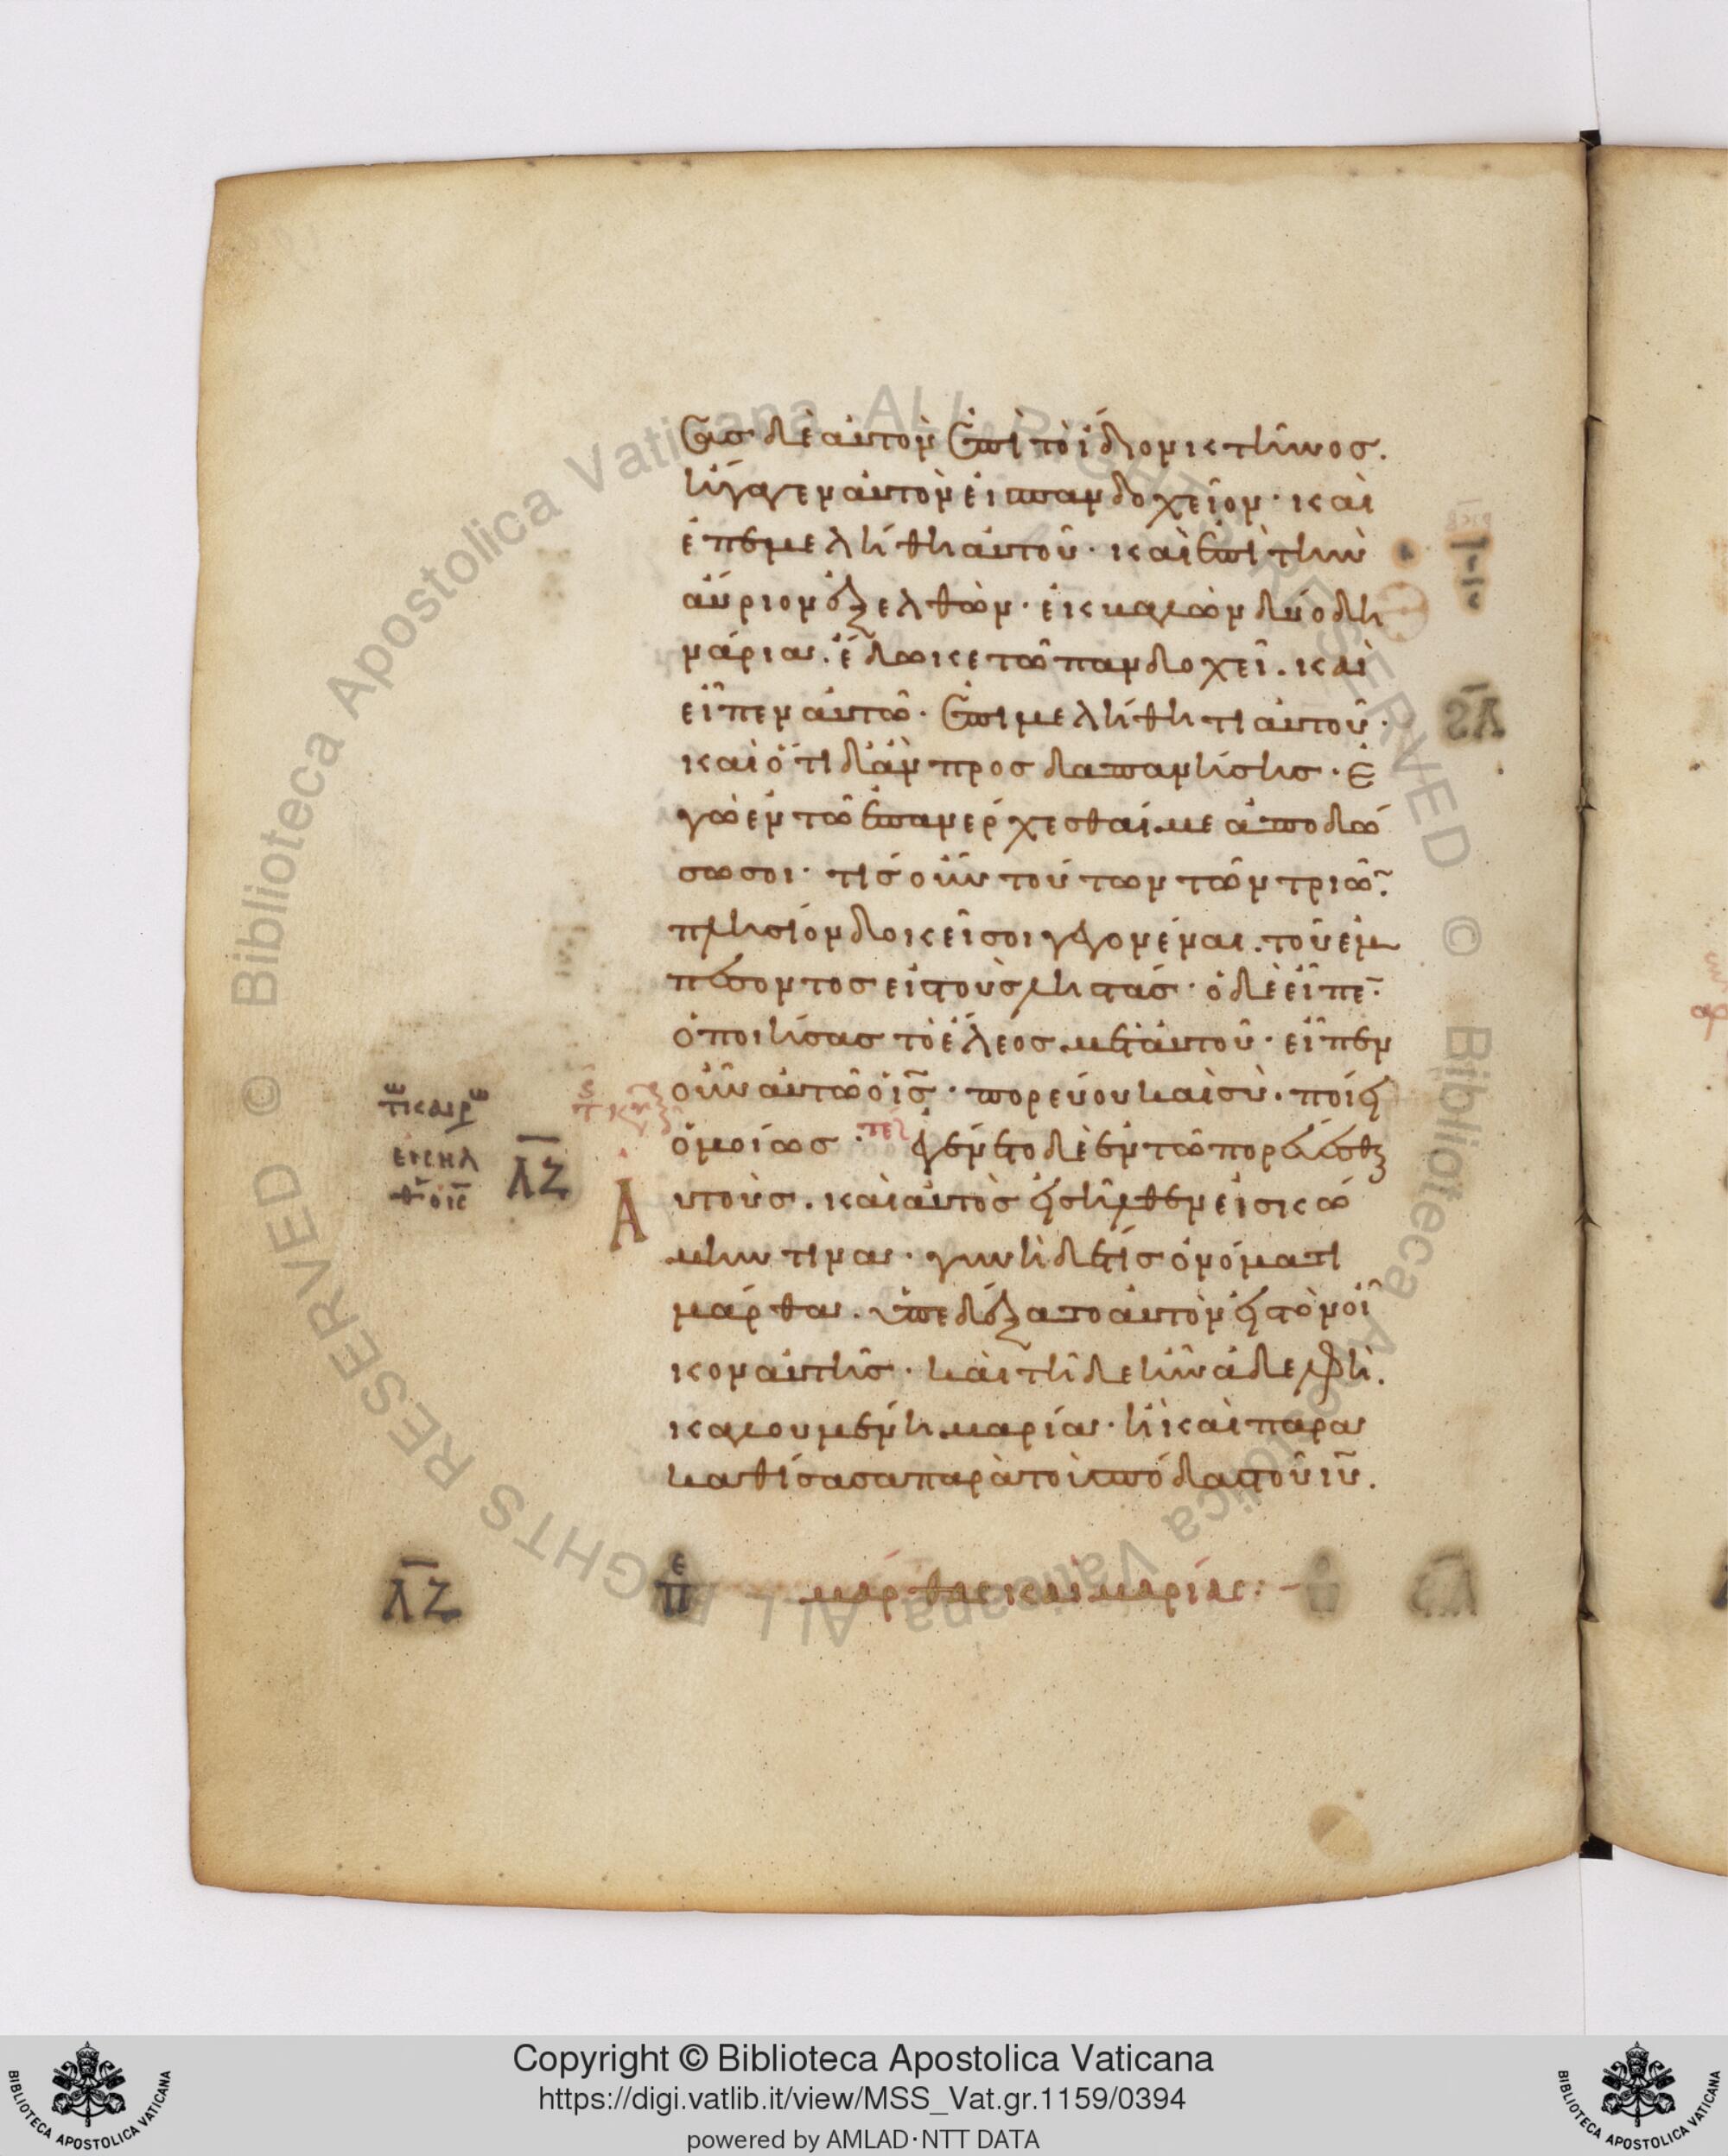 σας δὲ αὐτὸν ἐπὶ τὸ ἴδιον κτῆνος.
ἤγαγεν αὐτὸν εἰς πανδοχεῖον· καὶ
ἐπεμελήθη αὐτοῦ· καὶ ἐπὶ τὴν
αὔριον ἐξελθὼν· ἐκβαλὼν δύο δη
νάρια. ἔδωκε τῶ πανδοχεῖ. καὶ
εἶπεν αὐτῶ· ἐπιμελήθητι αὐτοῦ·
καὶ ὅτι δἂν προσδαπανήσης· ἐ
γὼ ἐν τῶ ἐπανέρχεσθαί με ἀποδώ
σω σοι· τίς οὖν τούτων τῶν τριῶ̅·
πλησίον δοκεῖ σοι γεγονέναι. τοῦ ἐμ
πεσόντος εἰς τοὺς ληστάς· ὁ δὲ εἶπε̅·
ὁ ποιήσας τὸ ἔλεος μετ' αὐτοῦ· εἶπεν
οὖν αὐτῶ ὁ ις̅· πορεύου καὶ σὺ. ποίει
ὁμοίως· τελ ἐγένετο δὲ ἐν τῶ πορεύεσθαι
Α
υτοὺς. καὶ αὐτὸς εἰσῆλθεν εἰς κώ
μην τινα· γυνὴ δέ τις ὀνόματι
μάρθα. ὑπεδέξατο αὐτὸν εἰς τὸν οἶ
κον αὐτῆς· καὶ τῆδε ἦν ἀδελφὴ.
καλουμένη μαρία· ἣ καὶ παρα
καθίσασα παρὰ τοὺς πόδας τοῦ ιυ̅.
τ̅ καιρω
εἰσηλ
θ ὁ ις̅
Λ̅Ζ̅
Λ̅Ζ̅
πε
μάρθας καὶ μαρίας:-
Copyright © Biblioteca Apostolica Vaticana
https://digi.vatlib.it/view/MSS_Vat.gr.1159/0394
powered by AMLAD·NTT DATA
BIBLIOTECA APOSTOLICA VATICANA
BIBLIOTECA APOSTOLICA VATICANA
© Biblioteca Apostolica Vaticana ALL RIGHTS RESERVED © Biblioteca Apostolica Vaticana ALL RIGHTS RESERVED